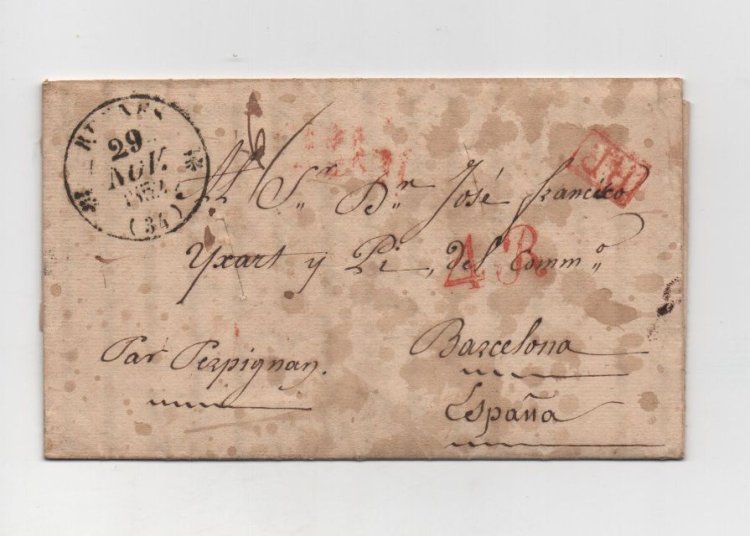 RENNES
29
NOV.
(34)
Al Sr. Dn. José Francisco
Yxart y Pi, del Commo
4R
Par Perpignan.
Barcelona
España